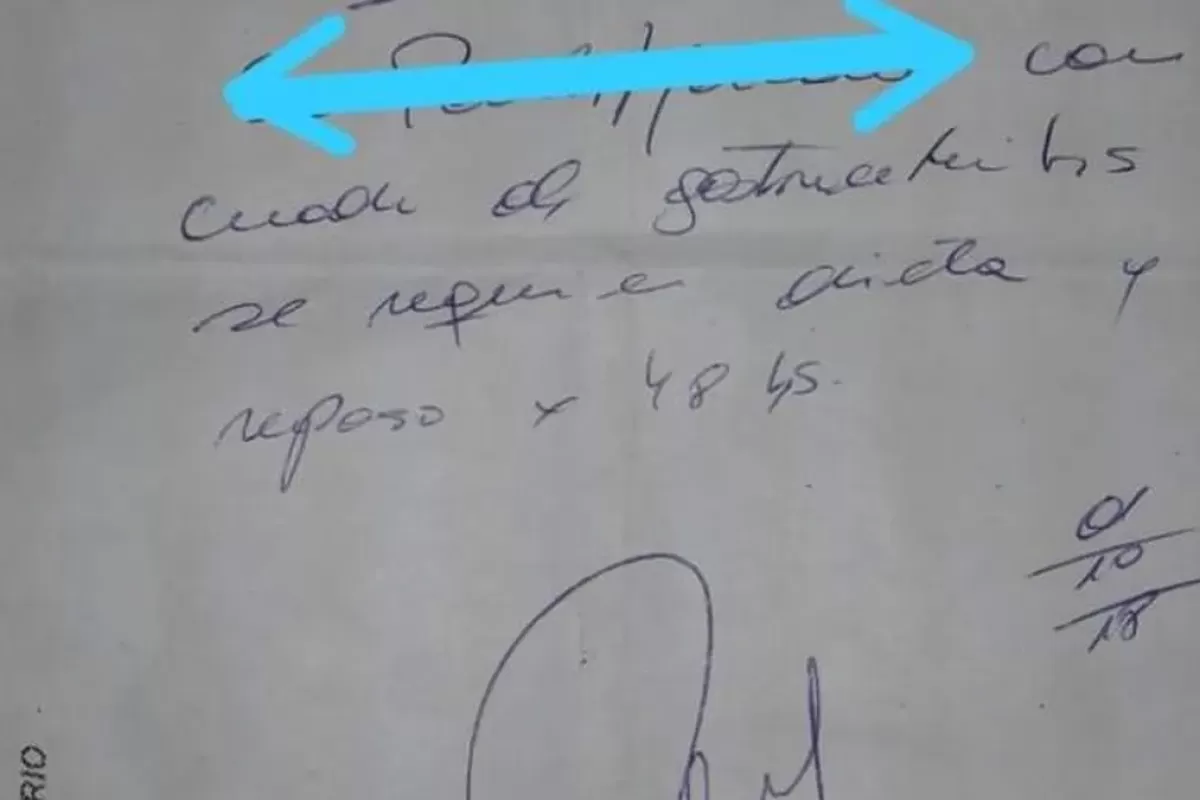 con
cuadro de gastroenteritis
se requiere dieta y
reposo x 48 hs.
10
18
RIO